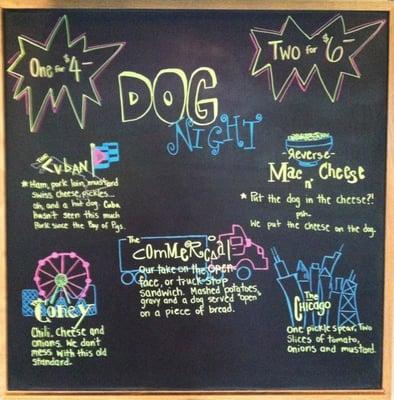 One for $4-
Two for $6-
DOG
NIGHT
Cuban
* Ham, pork loin, mustard
swiss cheese, pickles...
oh, and a hot dog. Cuba
hasn't seen this much
Pork since the Bay of Pigs.
-Reverse-
Mac n' Cheese
* Put the dog in the cheese?!
psh.
We put the cheese on the dog.
The
Commercial
Our take on the open-
face, or truck-stop
sandwich. Mashed potatoes,
gravy and a dog served "open"
on a piece of bread.
Coney
Chili, Cheese and
onions. We don't
mess with this old
standard.
The
Chicago
One pickle spear, Two
Slices of tomato,
Onions and mustard.